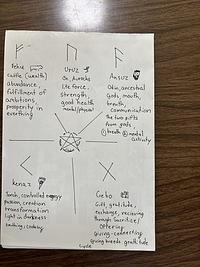 Fehu
cattle (wealth)
abundance,
fulfillment of
ambitions
prosperity in
everthing
Uruz
Ox, Aurochs
life force,
strength,
good health
mental/physical
Ansuz
Odin, ancestral
gods, mouth,
breath,
communication
the two gifts
from gods,
① breath ② mental
activity
Kenaz
Torch, controlled energy
passion, creation
transformation
light in darkness
Gebo
Gift, gratitude,
exchange, recieving
through sacrifice/
offering
Giving - connecting
giving breeds gratitude
cycle